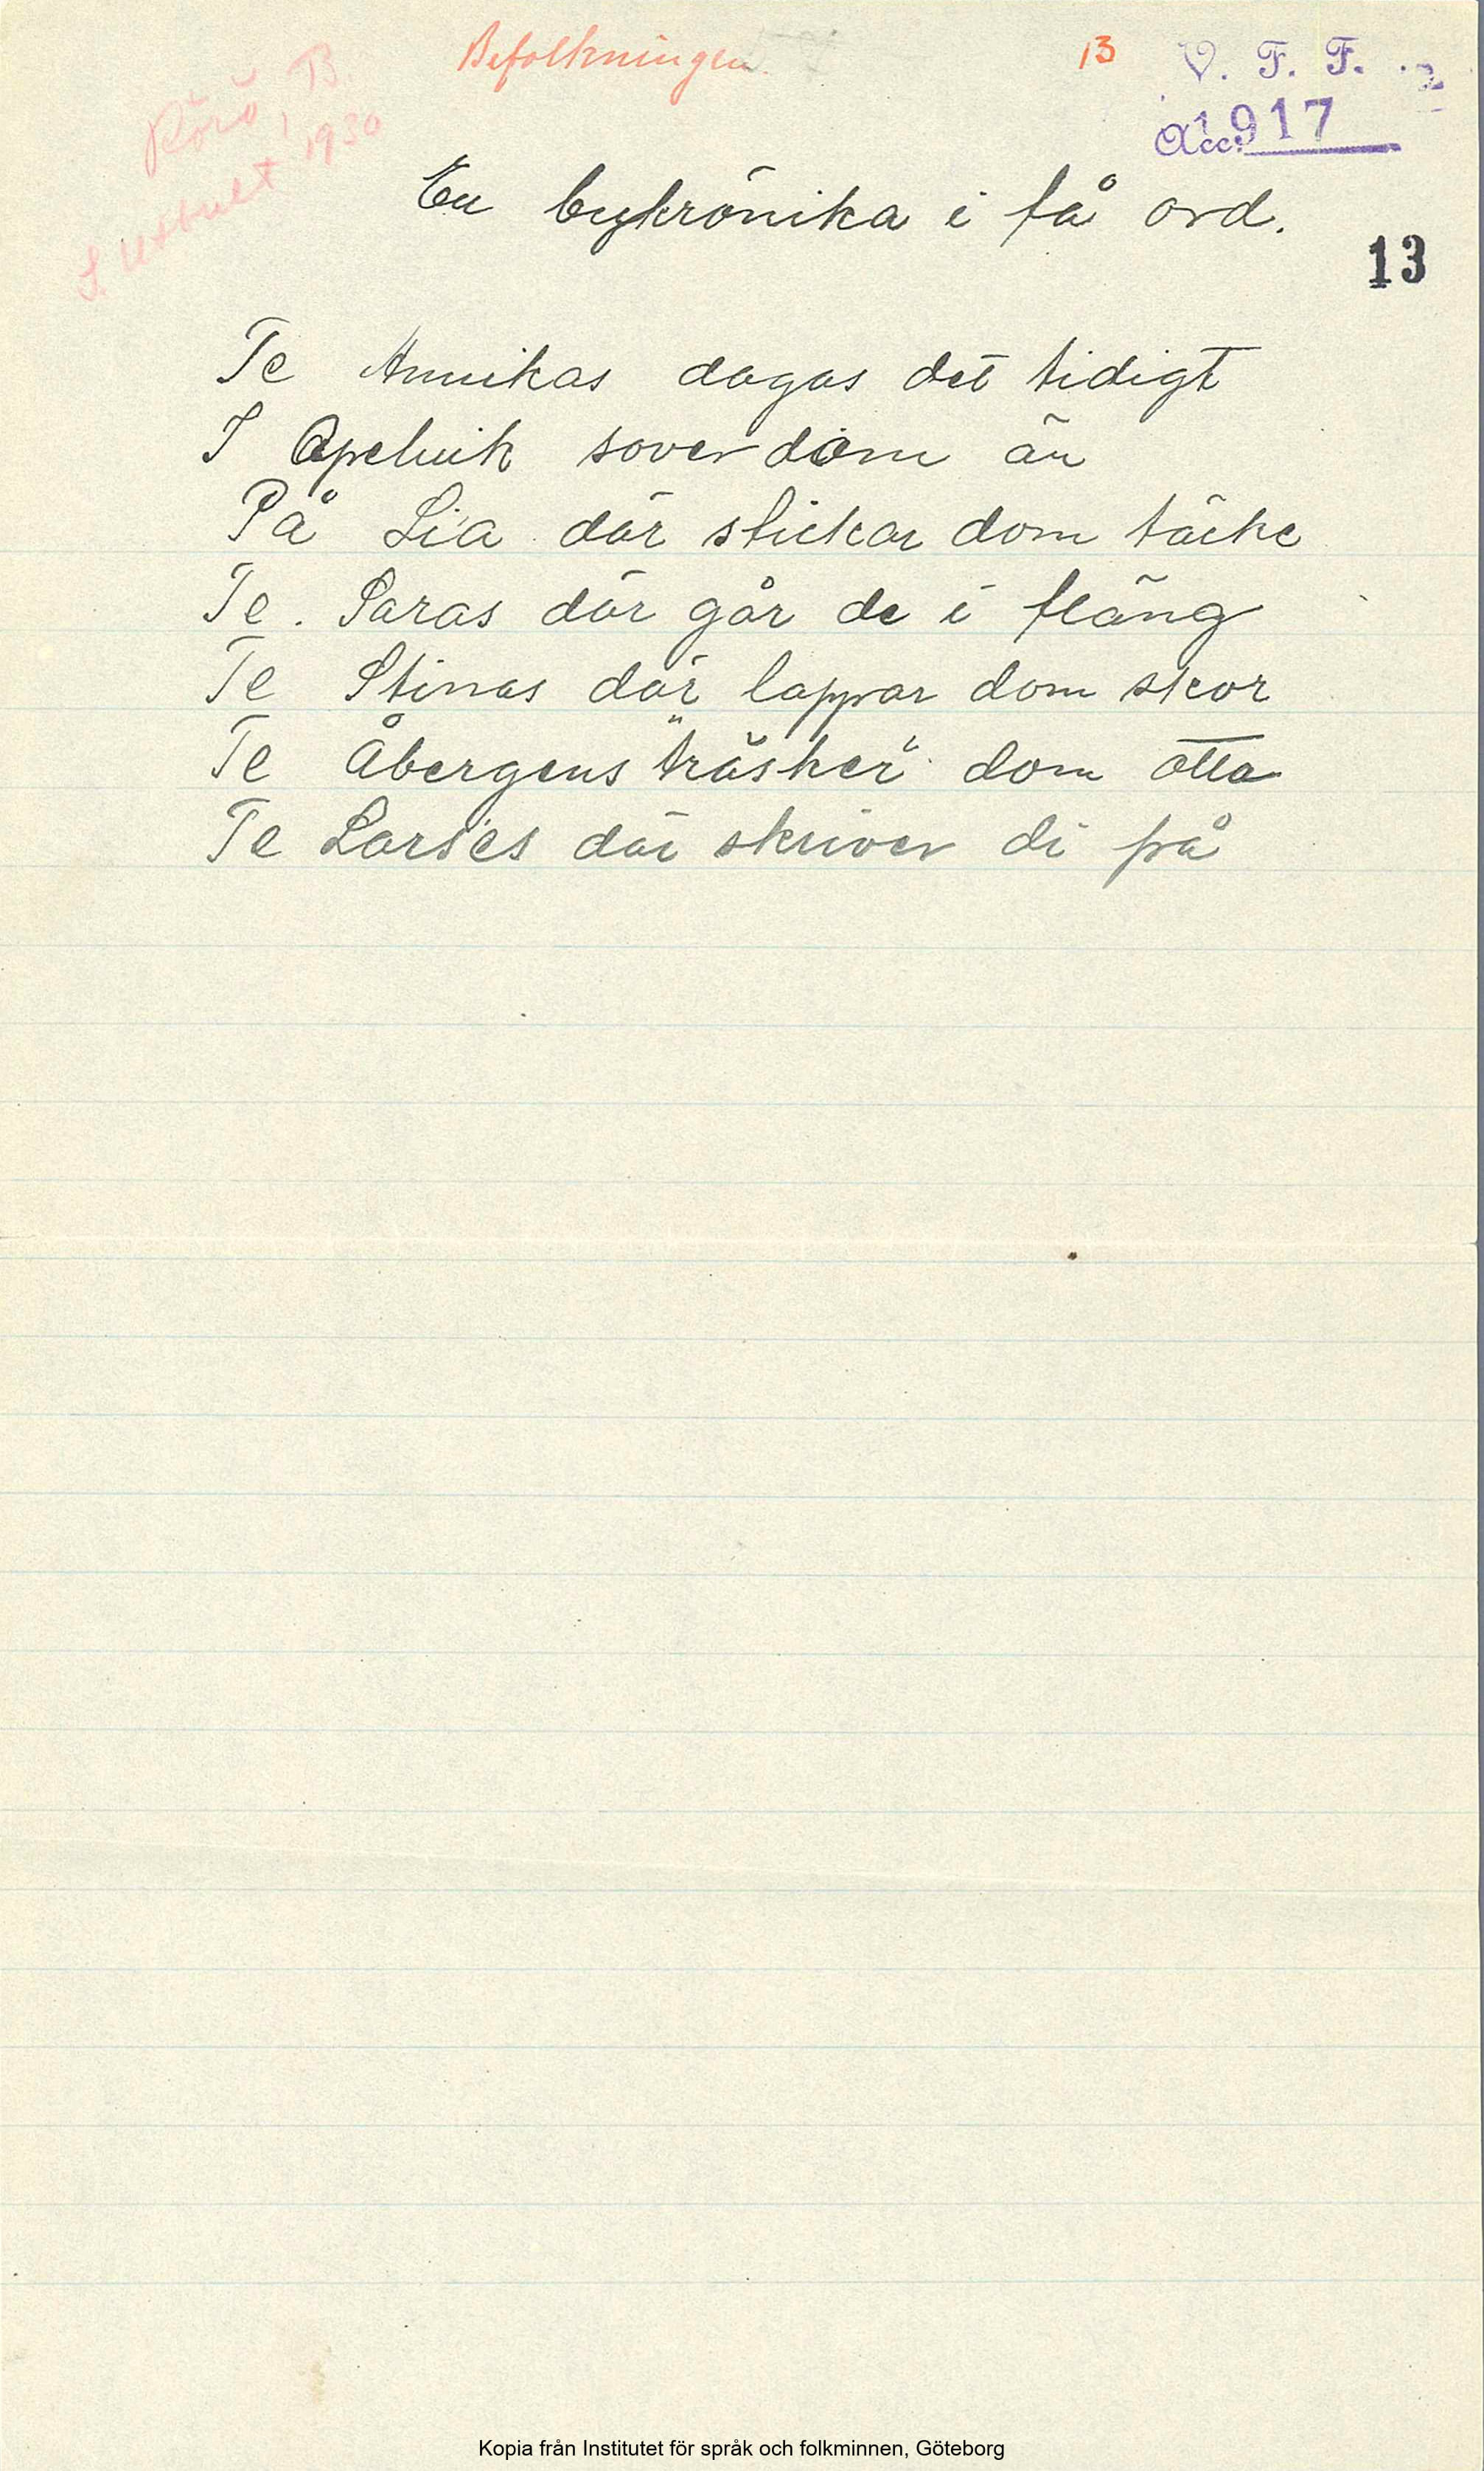 Befolkningen
13
V. F. F.
Acc. 1917
Rörö, B.
S. Utbult 1930
En bykrönika i få ord.
13
Te Annikas dagas det tidigt
I Apelvik sover dom än
På Lia där stickar dom täcke
Te. Saras där går de i fläng
Te Stinas där lappar dom skor
Te Åbergens "träsker" dom otta
Te Larses där skriver di på
Kopia från Institutet för språk och folkminnen, Göteborg